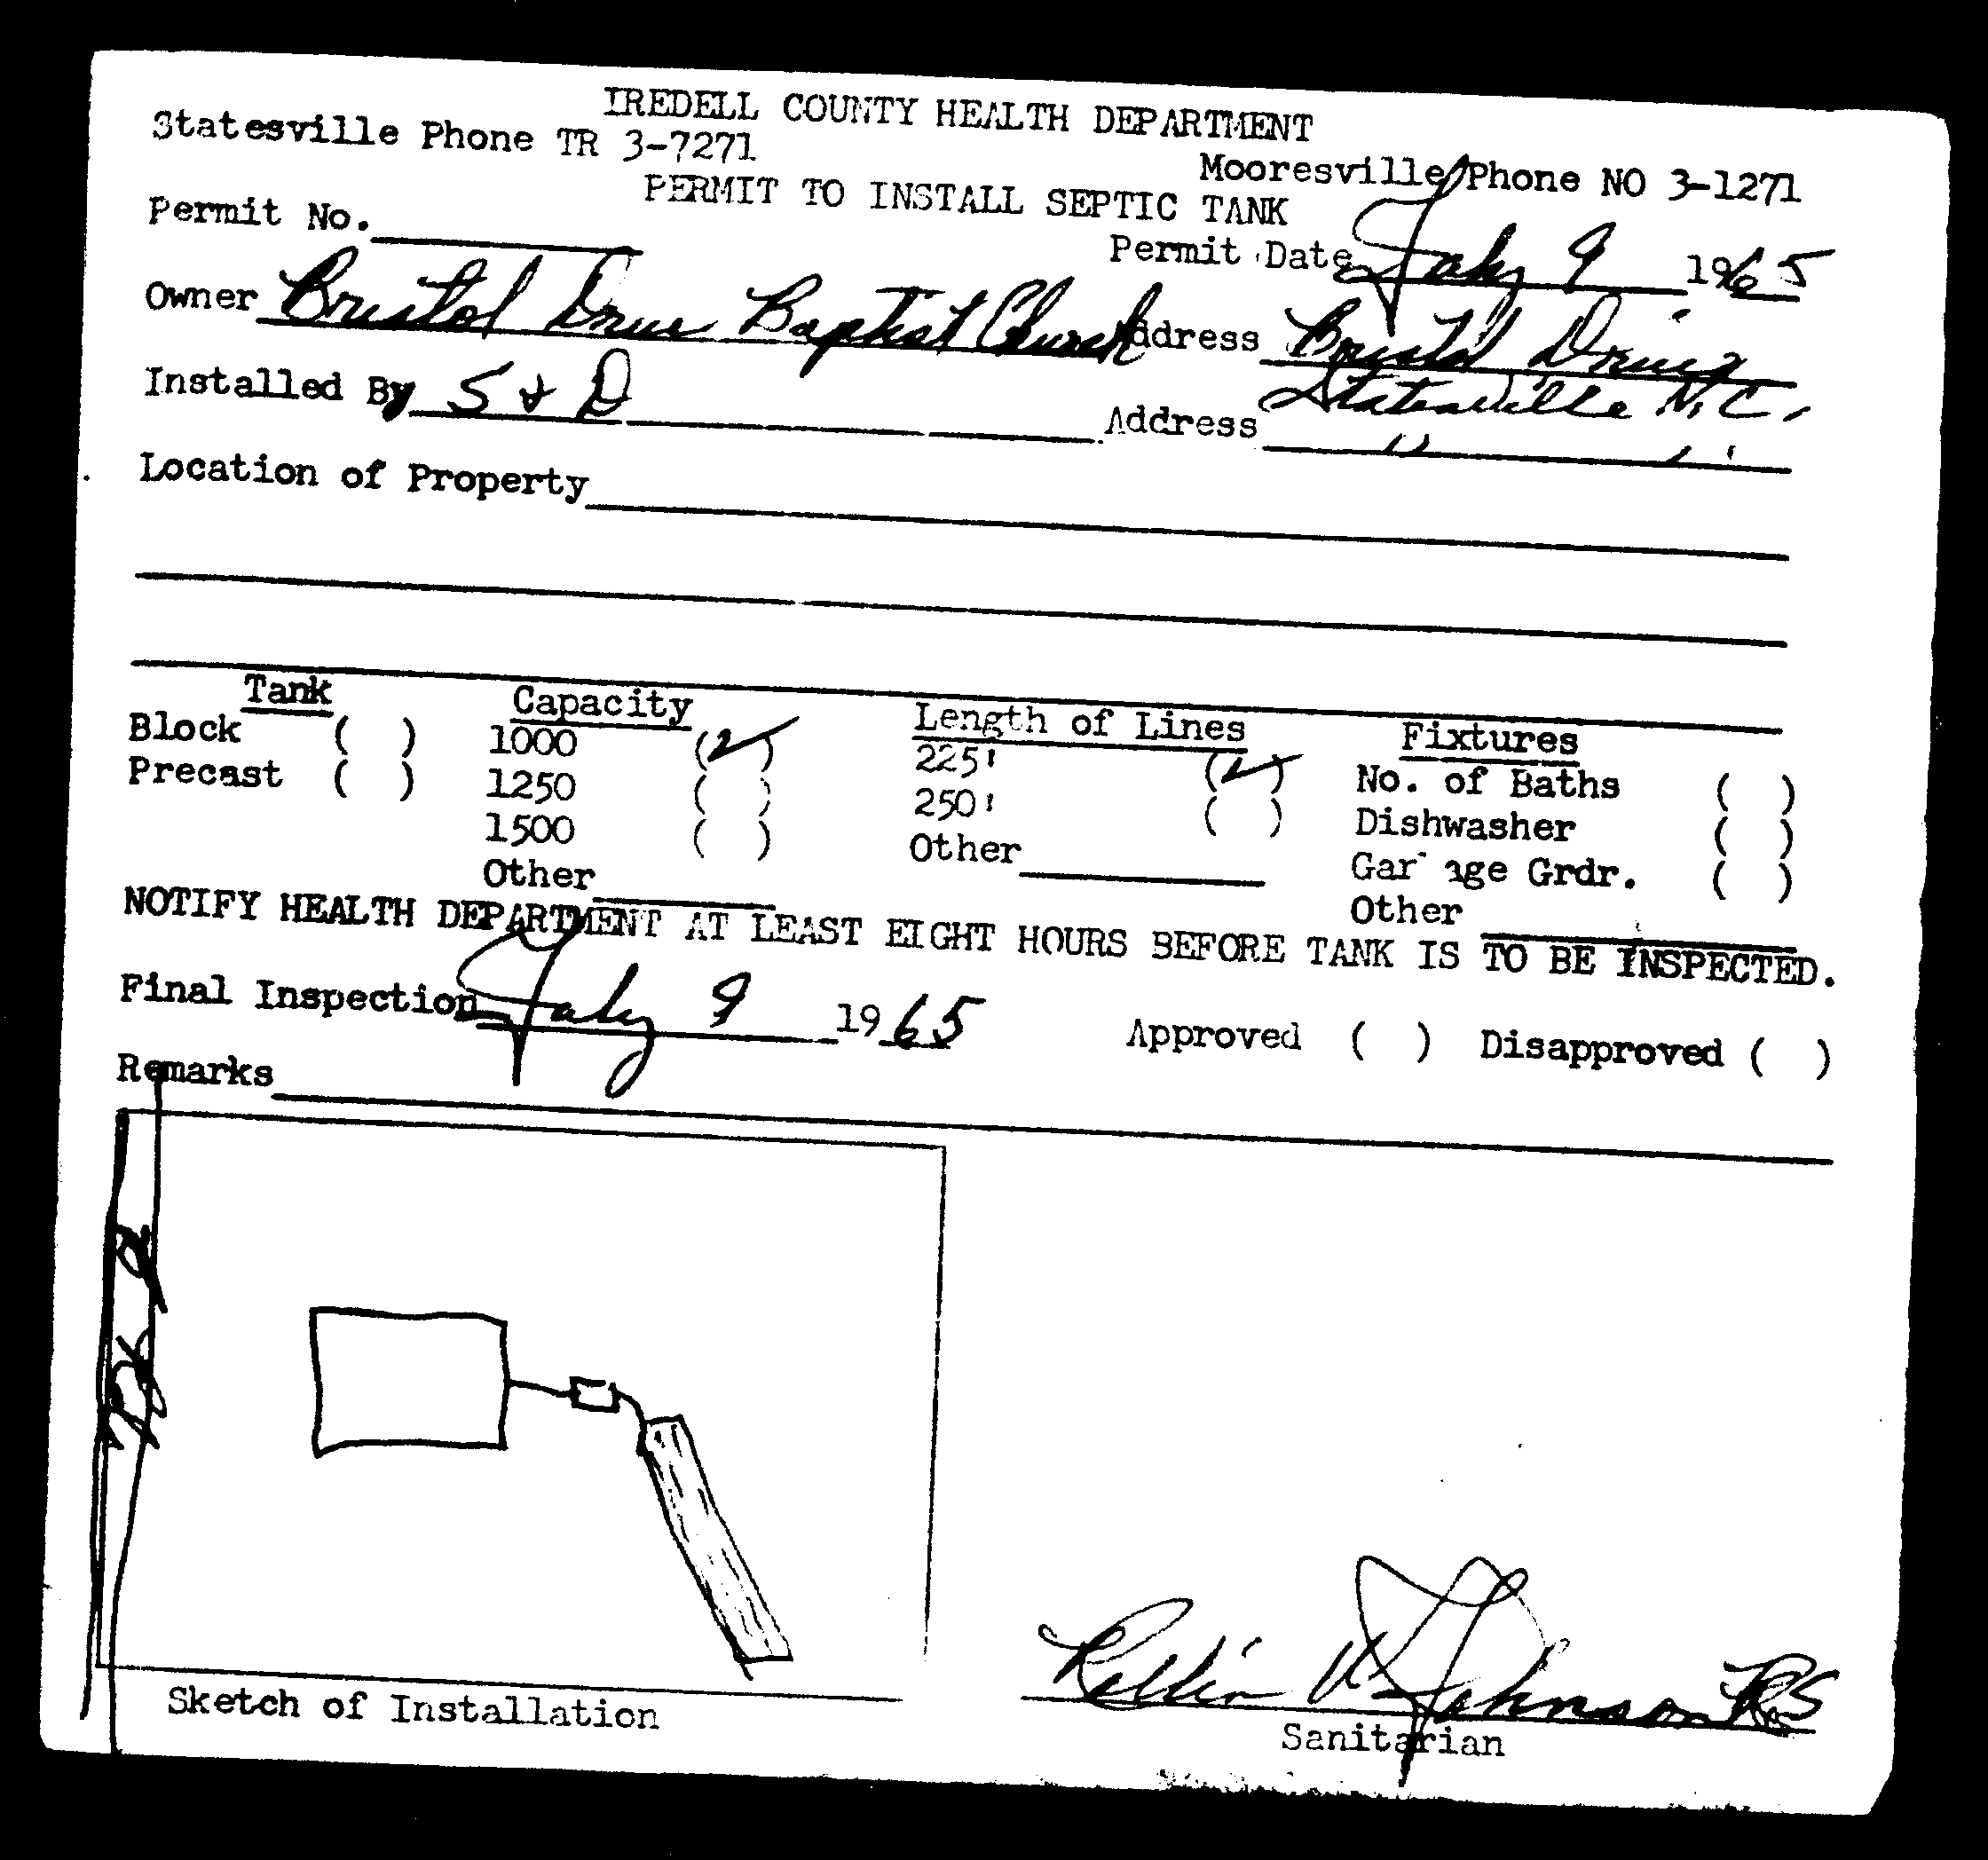 IREDELL COUNTY HEALTH DEPARTMENT
Statesville Phone TR 3-7271 Mooresville Phone NO 3-1271
PERMIT TO INSTALL SEPTIC TANK
Permit No. Permit Date July 9 1965
Owner Bristol Drive Baptist Church Address Bristol Drive
Statesville N.C.
Installed By S & D Address " "
Location of Property
Tank Capacity Length of Lines Fixtures
Block ( ) 1000 (✓) 225' (✓) No. of Baths ( )
Precast ( ) 1250 ( ) 250' ( ) Dishwasher ( )
1500 ( ) Other Gar age Grdr. ( )
Other Other
NOTIFY HEALTH DEPARTMENT AT LEAST EIGHT HOURS BEFORE TANK IS TO BE INSPECTED.
Final Inspection July 9 1965 Approved ( ) Disapproved ( )
Remarks
Johnson RS
Sketch of Installation Sanitarian